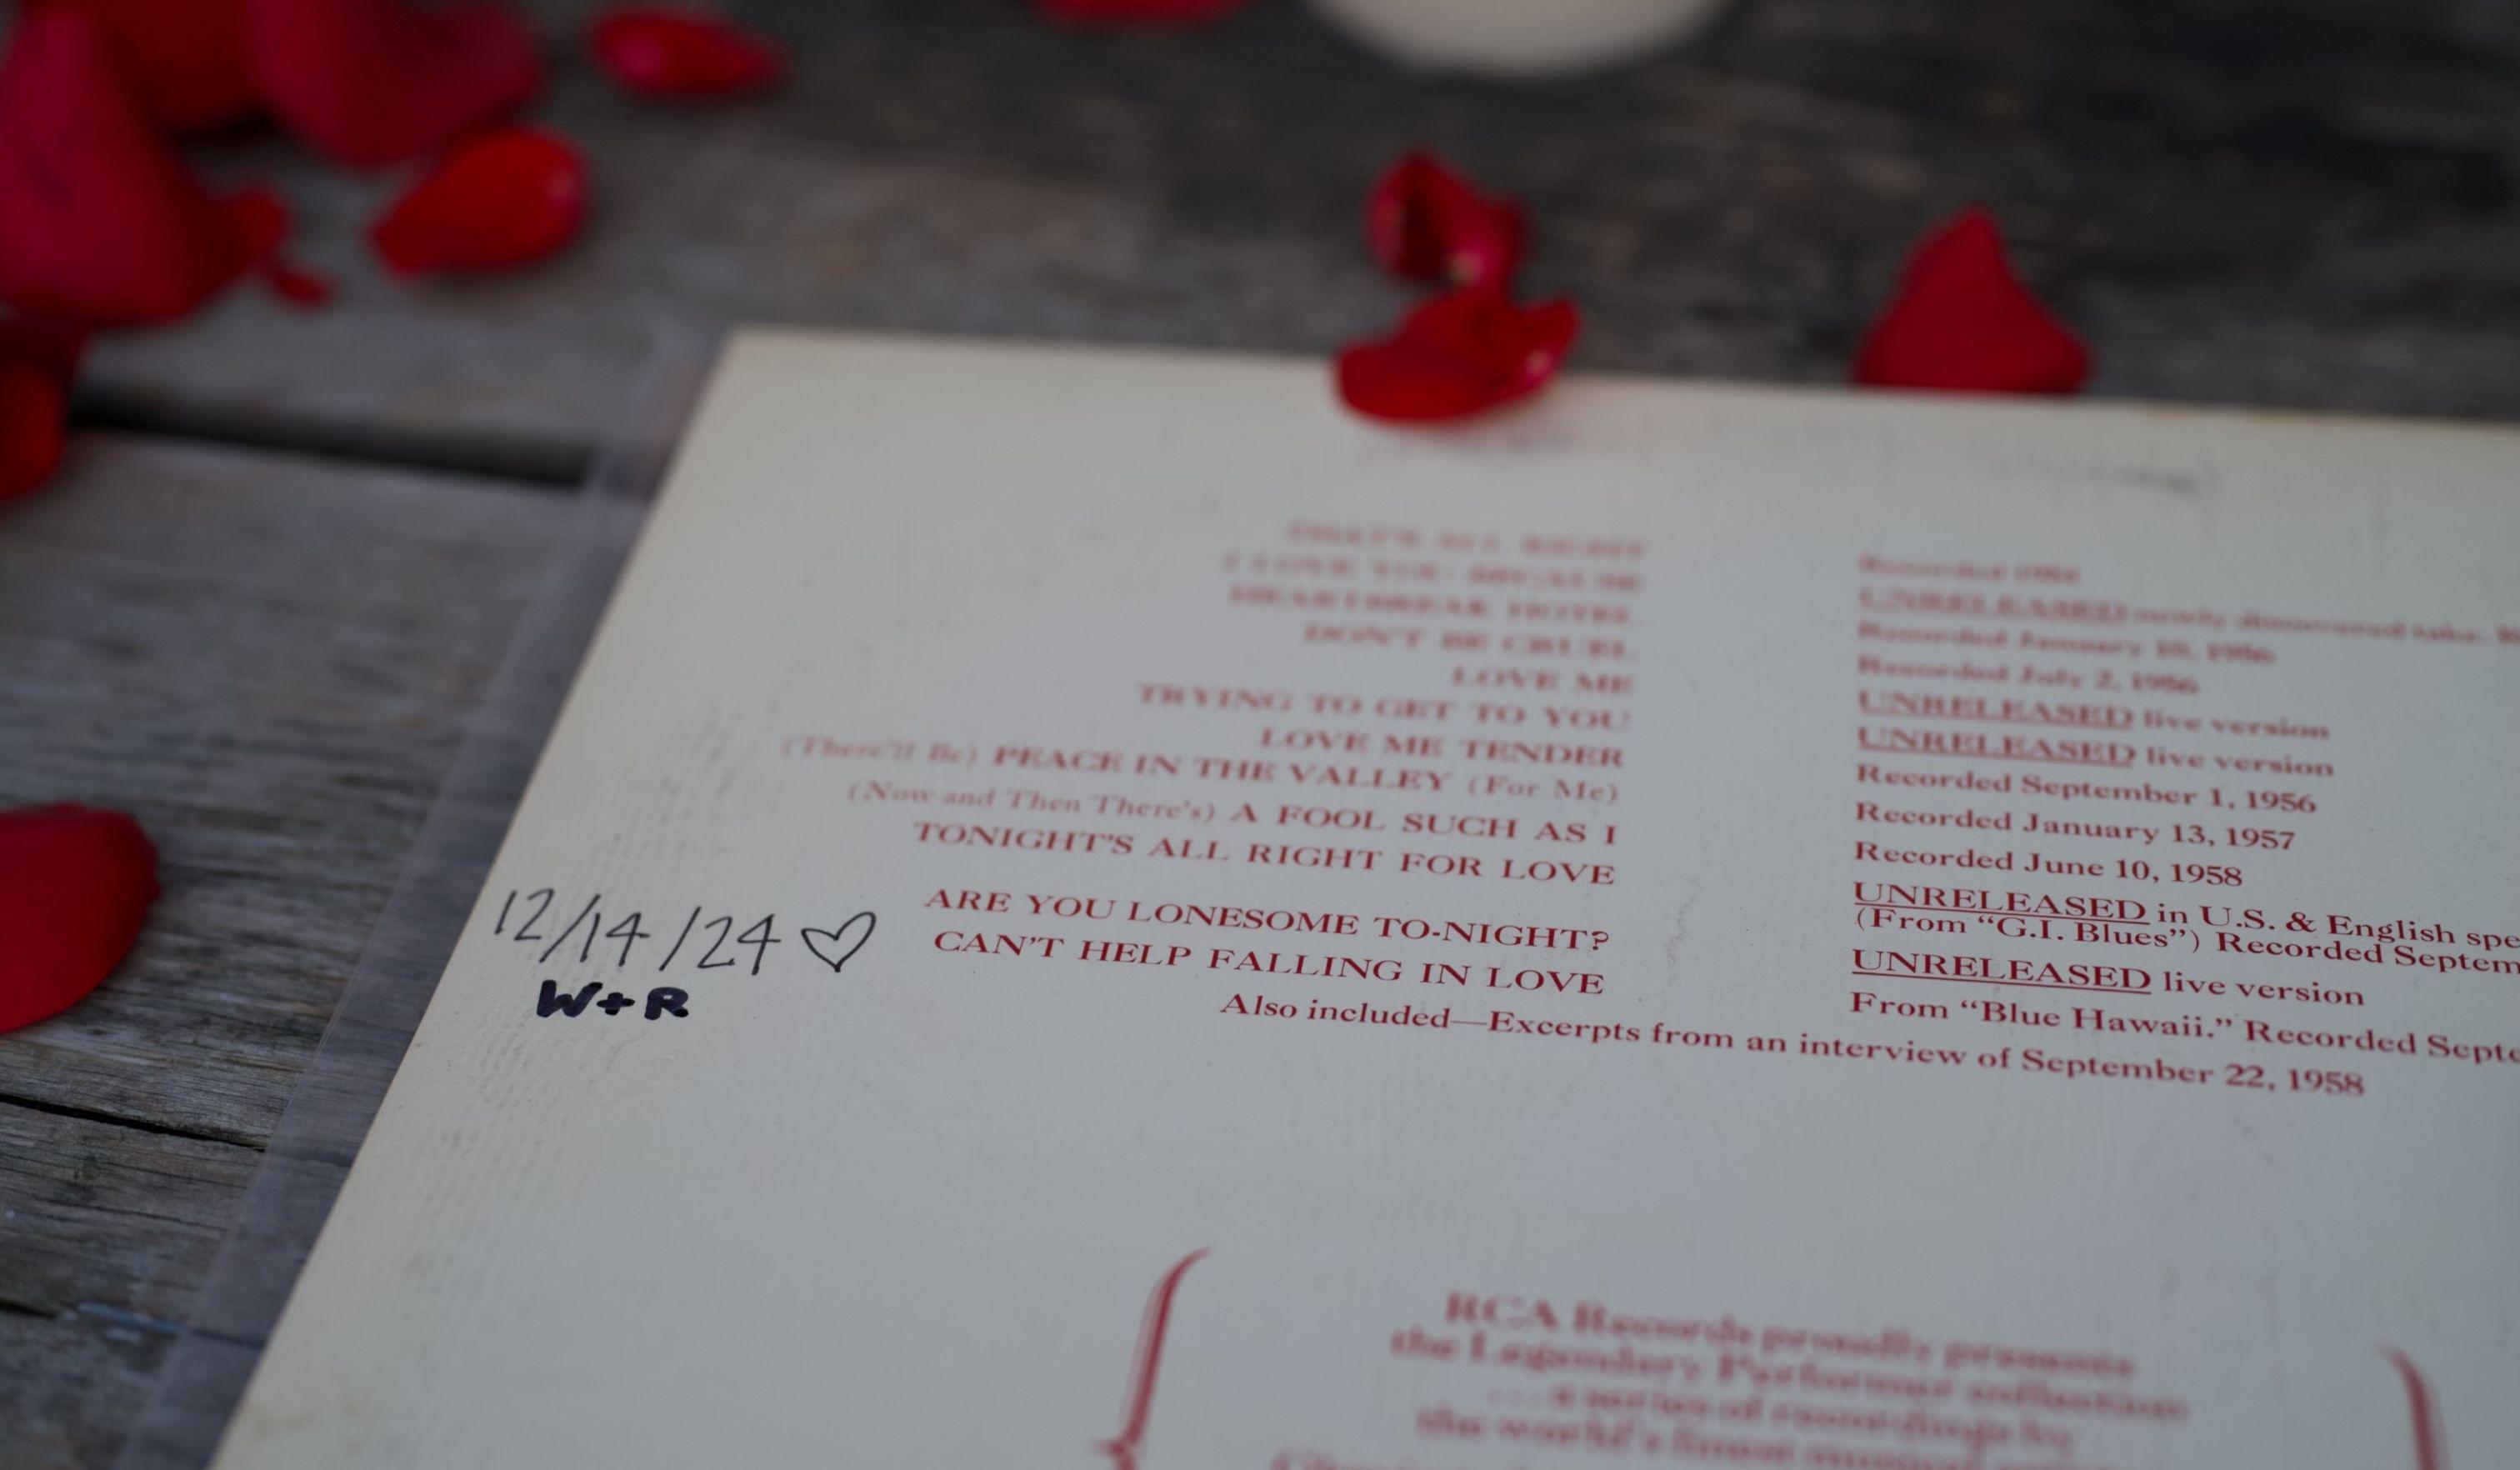 THAT'S ALL RIGHT
I LOVE YOU BECAUSE
HEARTBREAK HOTEL
DON'T BE CRUEL
LOVE ME
TRYING TO GET TO YOU
LOVE ME TENDER
(There'll Be) PEACE IN THE VALLEY (For Me)
(Now and Then There's) A FOOL SUCH AS I
TONIGHT'S ALL RIGHT FOR LOVE
ARE YOU LONESOME TO-NIGHT?
CAN'T HELP FALLING IN LOVE
Recorded 1954
UNRELEASED newly discovered take.
Recorded January 10, 1956
Recorded July 2, 1956
UNRELEASED live version
UNRELEASED live version
Recorded September 1, 1956
Recorded January 13, 1957
Recorded June 10, 1958
UNRELEASED in U.S. & English
(From “G.I. Blues”) Recorded
UNRELEASED live version
From “Blue Hawaii.” Recorded
Also included—Excerpts from an interview of September 22, 1958
12/14/24 ♡
W+R
RCA Records proudly presents
the Legendary Performer collection
...a series of recordings by
the world's finest musical